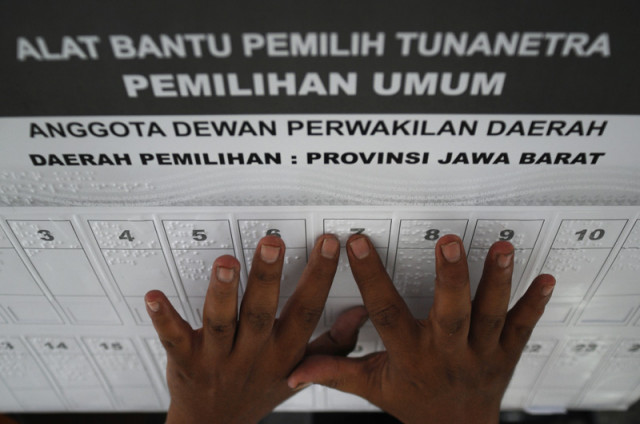 ALAT BANTU PEMILIH TUNANETRA
PEMILIHAN UMUM
ANGGOTA DEWAN PERWAKILAN DAERAH
DAERAH PEMILIHAN : PROVINSI JAWA BARAT
3 4 5 6 7 8 9 10
14 15 22 23